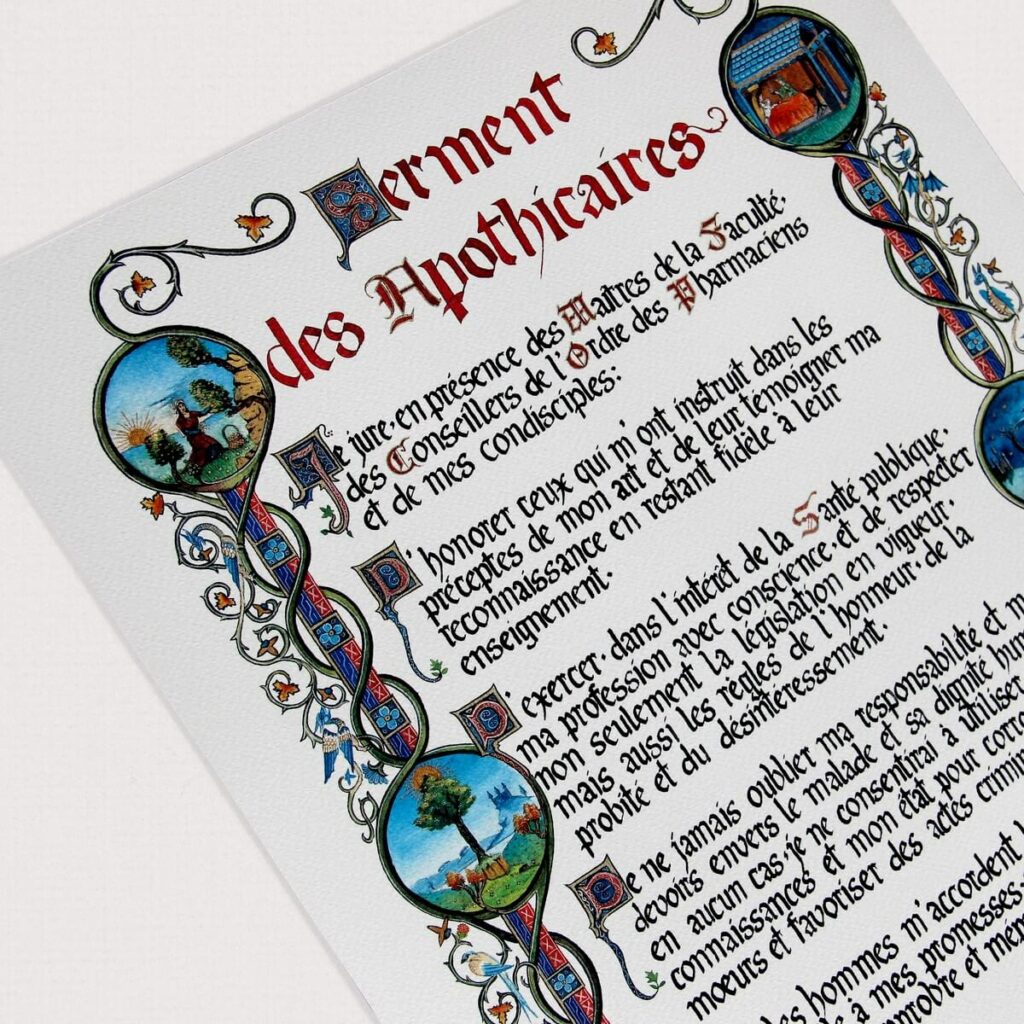 Serment
des Apothicaires
Je jure, en présence des Maîtres de la Faculté,
des Conseillers de l'Ordre des Pharmaciens
et de mes condisciples:
D'honorer ceux qui m'ont instruit dans les
préceptes de mon art et de leur témoigner ma
reconnaissance en restant fidèle à leur
enseignement.
D'exercer, dans l'intérêt de la Santé publique,
ma profession avec conscience, et de respecter
non seulement la législation en vigueur,
mais aussi les règles de l'honneur, de la
probité et du désintéressement.
De ne jamais oublier ma responsabilité et m
devoirs envers le malade et sa dignité hum
en aucun cas, je ne consentirai à utiliser
connaissances et mon état pour corro
moeurs et favoriser des actes crimin
les hommes m'accordent l
à mes promesses,